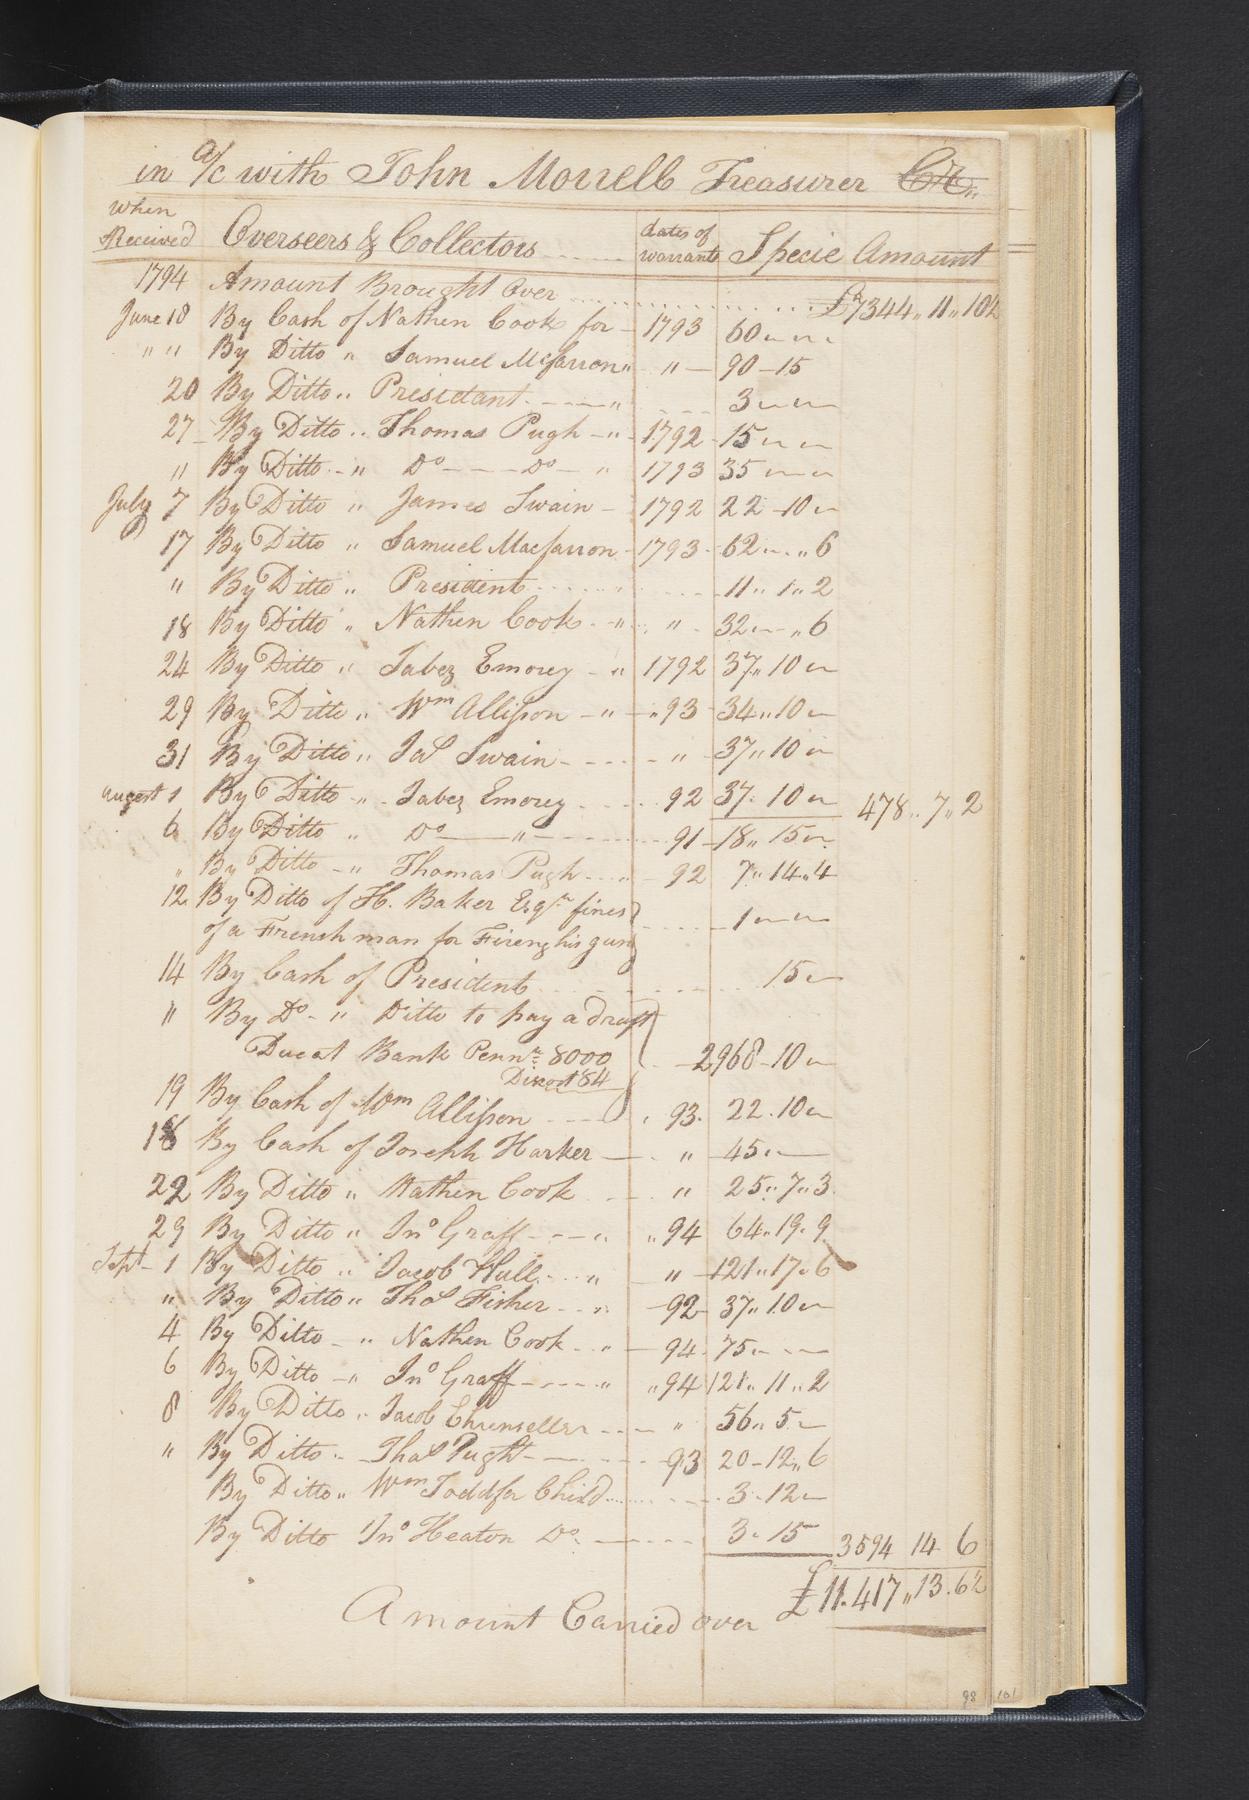 in a/c with John Morrell Treasurer Cr.
When Received Overseers & Collectors dates of warrants Specie Amount
1794 Amount Brought Over £7344 11 10½
June 18 By Cash of Nathen Cook for 1793 60 " "
" " By Ditto " Samuel Mcfarron " " 90 15
20 By Ditto " Presidant " 3 " "
27 By Ditto " Thomas Pugh " 1792 15 " "
" By Ditto " Do Do " 1793 35 " "
July 7 By Ditto " James Swain 1792 22 10 "
17 By Ditto " Samuel Macfarron 1793 62 " 6
" By Ditto " President 11 1 2
18 By Ditto " Nathen Cook " " 32 " 6
24 By Ditto " Jabez Emorey " 1792 37 10 "
29 By Ditto " Wm Allison " " 93 34 10 "
31 By Ditto " Jas Swain " 37 10 "
August 1 By Ditto " Jabez Emorey 92 37 10 " 478 7 2
6 By Ditto " Do " 91 18 15 "
" By Ditto " Thomas Pugh " 92 7 14 4
12 By Ditto of H. Baker Esqr fines
of a French man for Fireng his gun 1 " "
14 By Cash of President 15 "
" By Do " Ditto to pay a draft
Bank Penna 8000 2968 10 "
84
19 By Cash of Wm Allison 93 22 10 "
18 By Cash of Joseph Harker " 45 "
22 By Ditto " Nathen Cook " 25 7 3
29 By Ditto " Jno Graff " " 94 64 19 9
Sept 1 By Ditto " Jacob Hull " " 121 17 6
" By Ditto " Thos Fisher " 92 37 10 "
4 By Ditto " Nathen Cook " 94 75 " "
6 By Ditto " Jno Graff " " 94 121 11 2
8 By Ditto " Jacob " 56 5 "
" By Ditto " Thos Pught 93 20 12 6
By Ditto " Wm Todd for Child 3 12 "
By Ditto Jno Heaton Do 3 15 3594 14 6
£11.417 13 6½
Amount Carried over
98 101